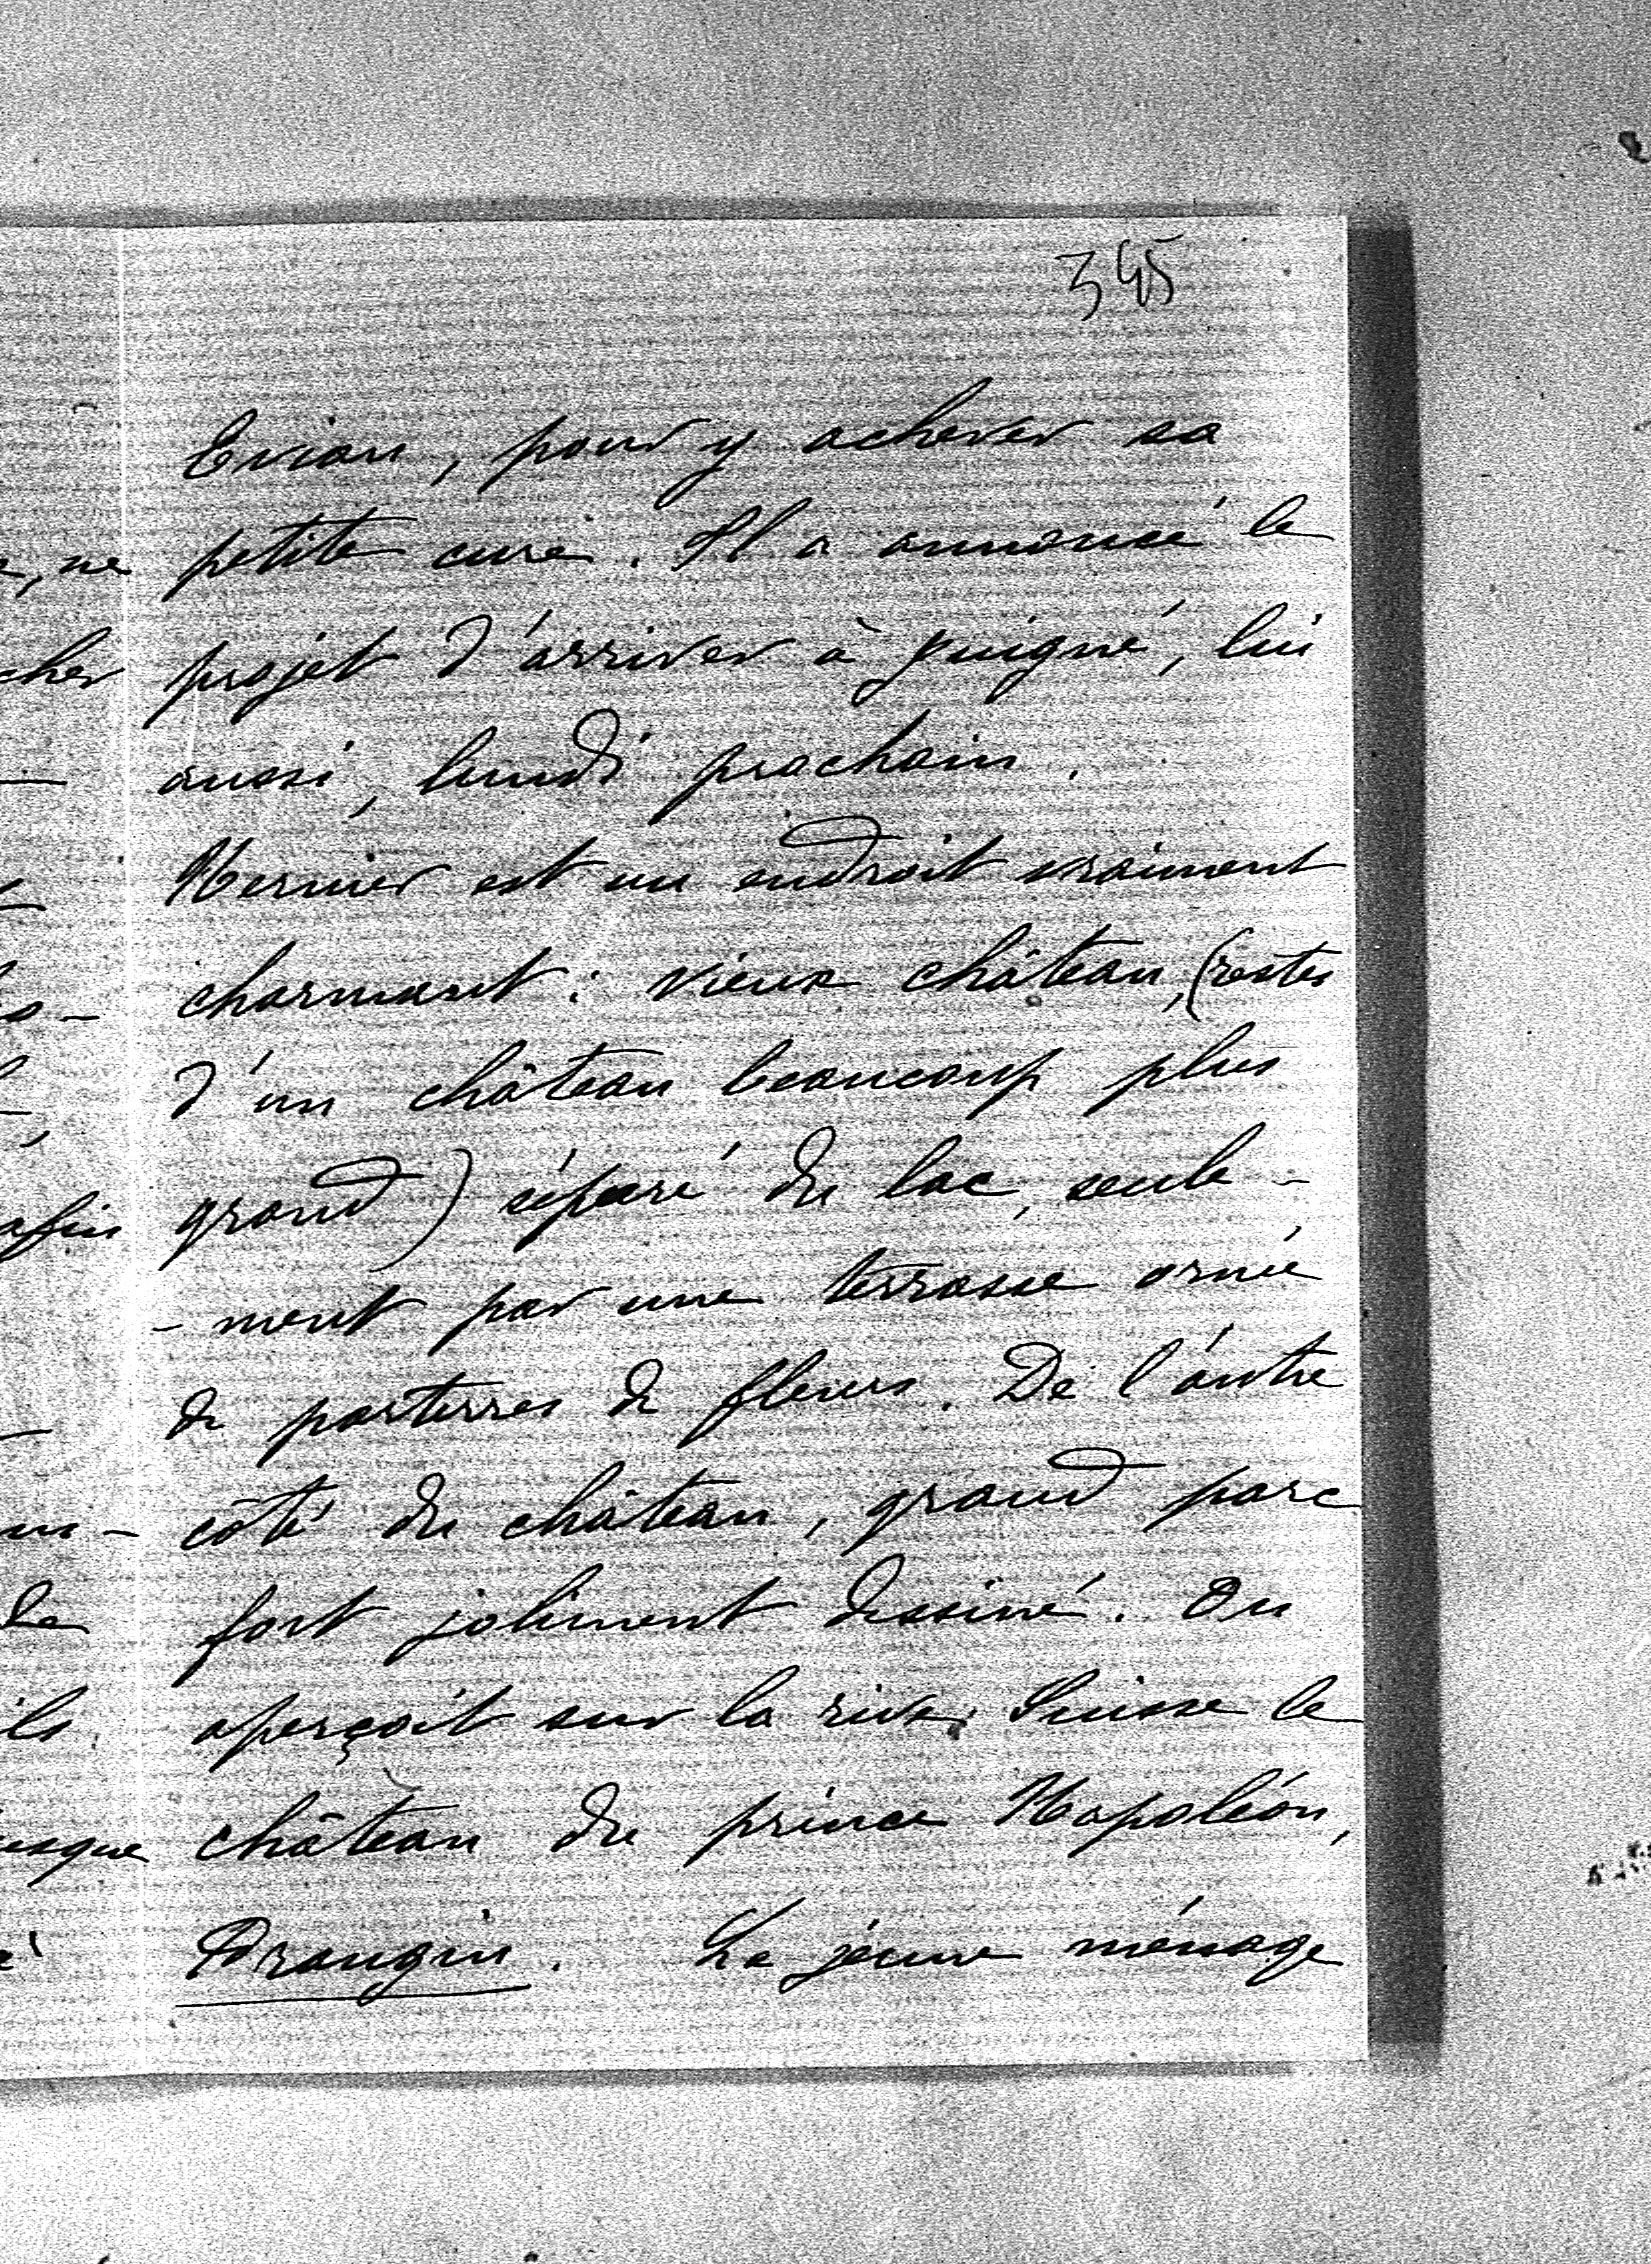 345
Evian, pour y achever sa
petite cure. Il a annoncé le
projet d'arriver à Juigné, lui
aussi, lundi prochain.
Nernier est un endroit vraiment
charmant : vieux château, (restes
d'un château beaucoup plus
grand) séparé du lac, seule-
-ment par une terrasse ornée
de parterres de fleurs. De l'autre
côté du château, grand parc
fort joliment dessiné. On
aperçoit sur la rive Suisse le
château du prince Napoléon,
Prangin. Le jeune ménage
ne
cher
afin
de
ils